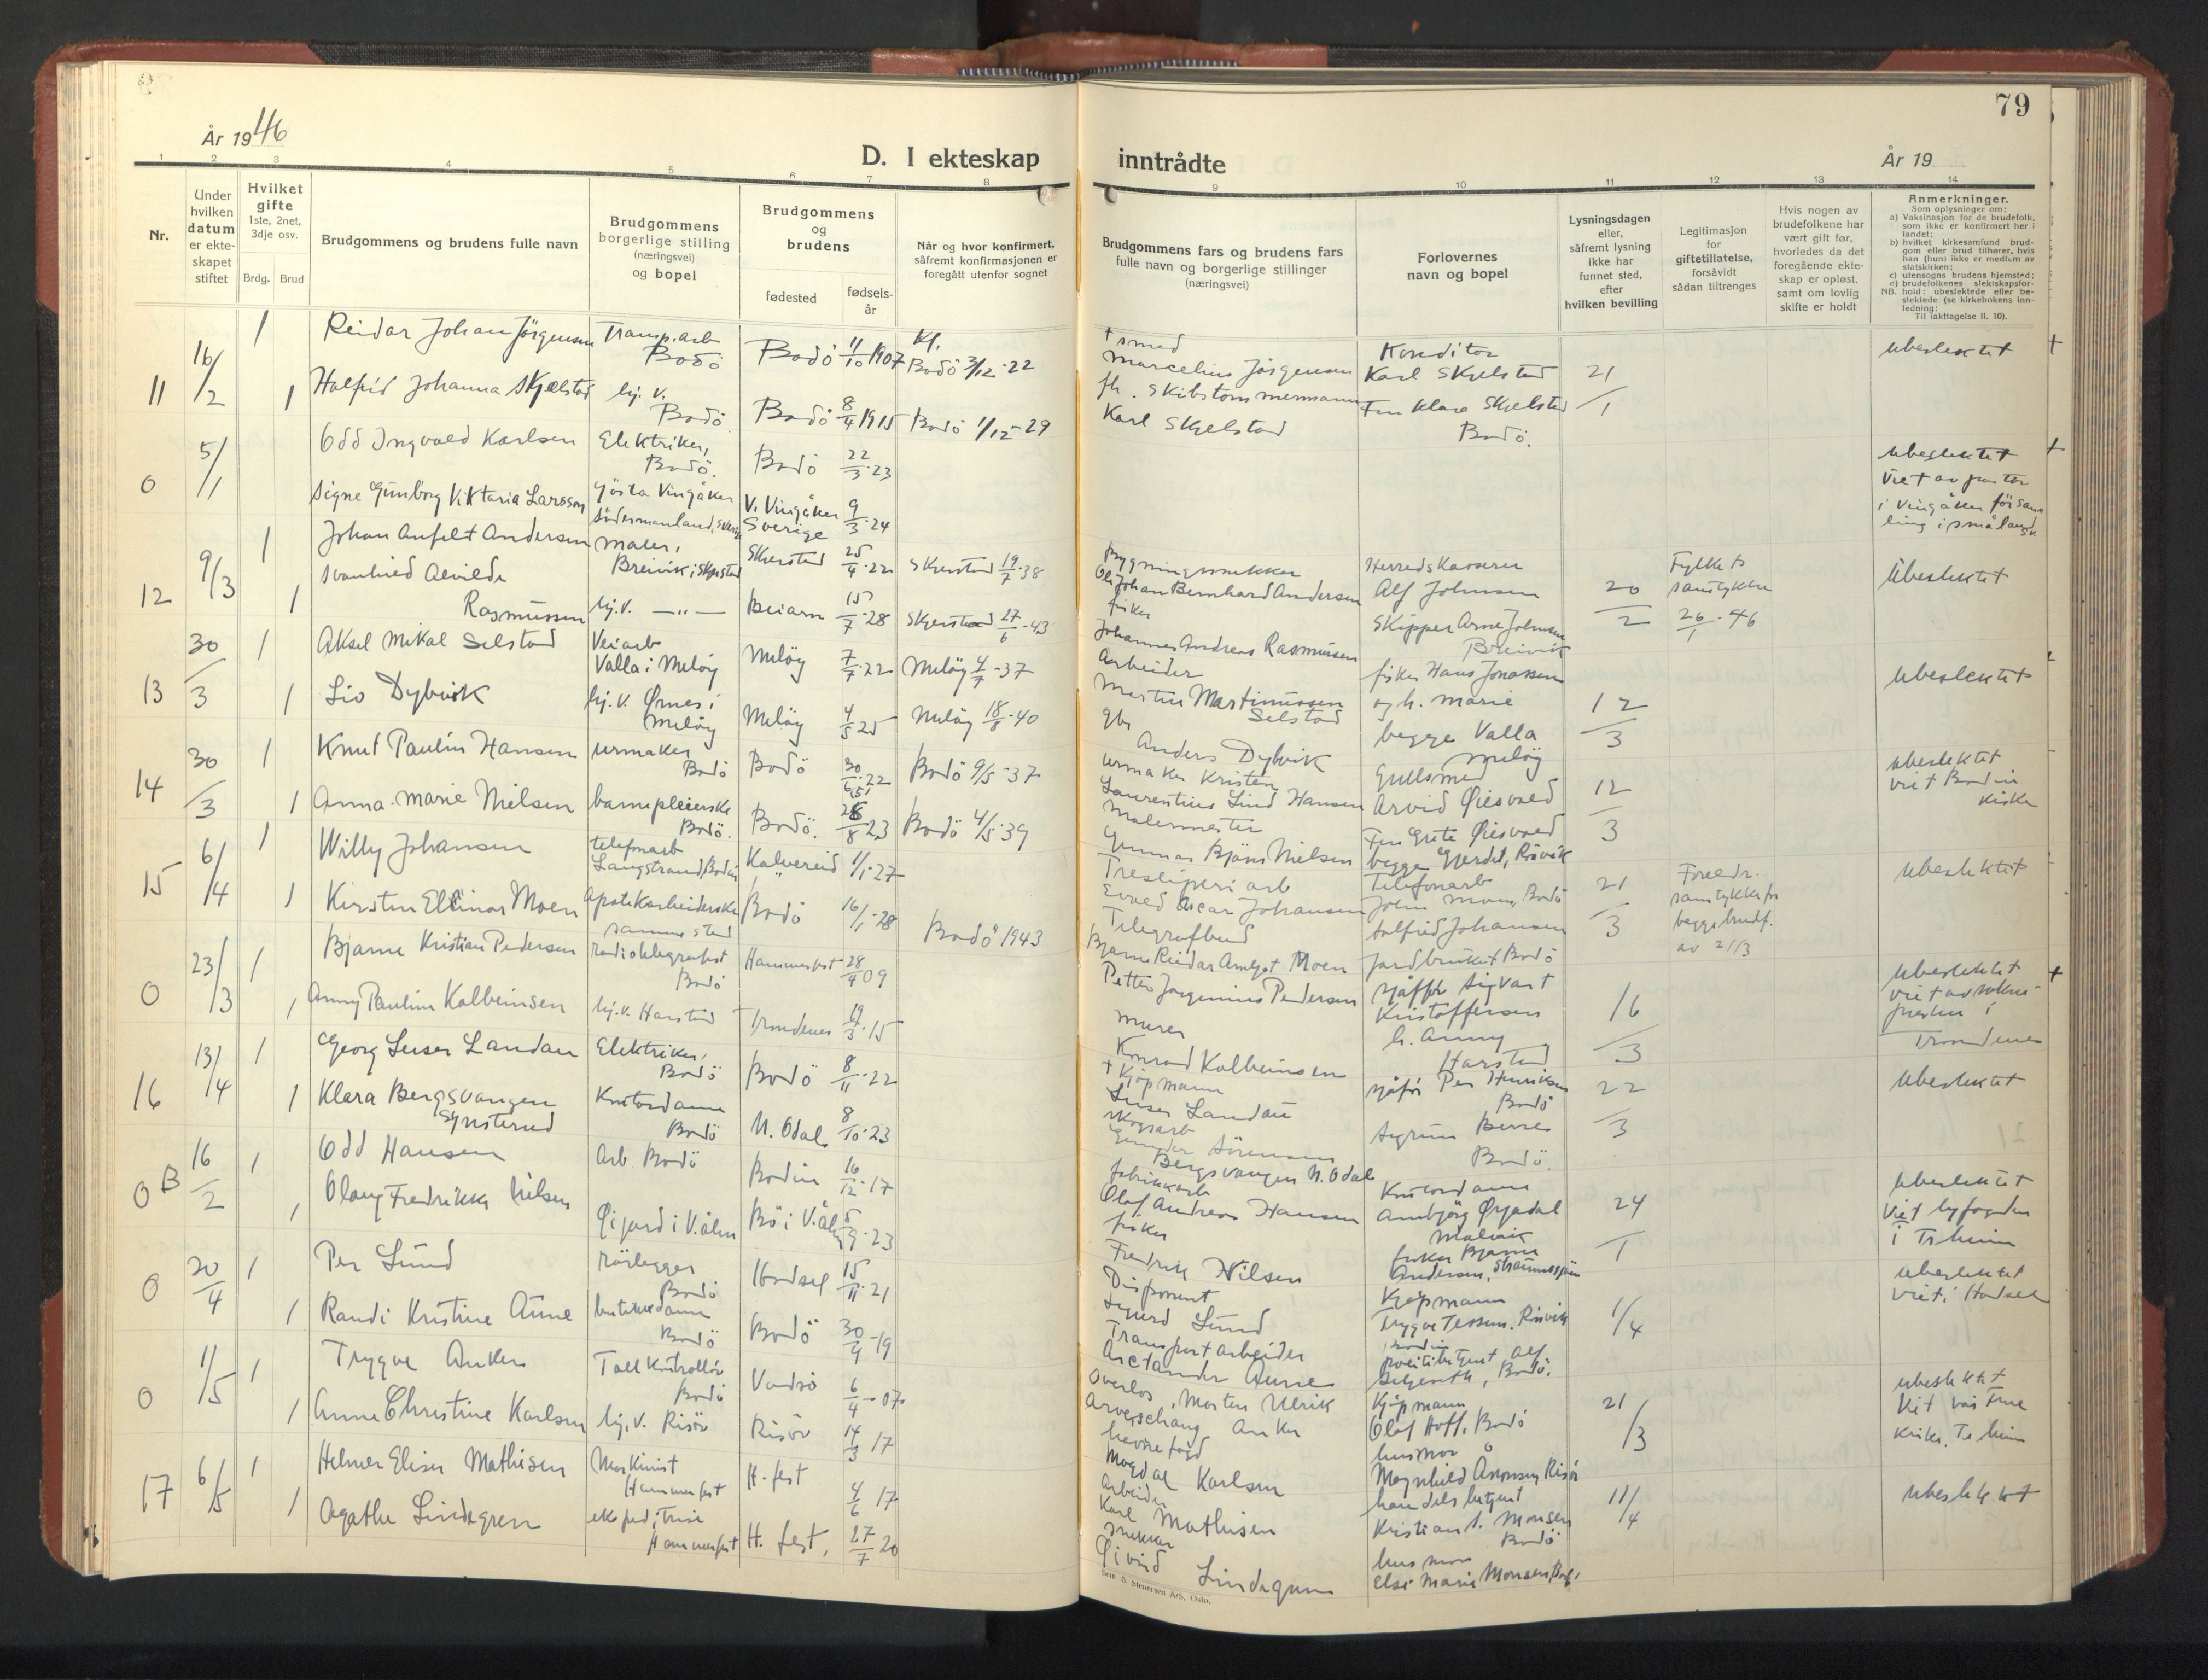 79
År 1946
D. I ekteskap
inntrådte
År 19
1 2 3 4 5 6 7 8 9 10 11 12 13 14
Nr.
Under hvilken datum er ekte- skapet stiftet
Hvilket gifte
1ste, 2net, 3dje osv.
Brdg. Brud
Brudgommens og brudens fulle navn
Brudgommens borgerlige stilling (næringsvei) og bopel
Brudgommens og brudens
fødested
fødsels- år
Når og hvor konfirmert, såfremt konfirmasjonen er foregått utenfor sognet
Brudgommens fars og brudens fars fulle navn og borgerlige stillinger (næringsvei)
Forlovernes navn og bopel
Lysningsdagen eller, såfremt lysning ikke har funnet sted, efter hvilken bevilling
Legitimasjon for giftetillatelse, forsåvidt sådan tiltrenges
Hvis nogen av brudefolkene har vært gift før, hvorledes da det foregående ekte- skap er opløst, samt om lovlig skifte er holdt
Anmerkninger.
Som oplysninger om:
a) Vaksinasjon for de brudefolk, som ikke er konfirmert her i landet;
b) hvilket kirkesamfund brud- gom eller brud tilhører, hvis han (hun) ikke er medlem av statskirken;
c) utensogns brudens hjemsted;
NB. hold: ubeslektede eller be- slektede (se kirkebokens inn- ledning:
Til iakttagelse II. 10).
11 16/2 1 Reidar Johan Jörgensen Transp.arb Bodö Bodö 11/10 1907 Kf. Bodö 3/12-22
1 Halfrid Johanna Skjelstad hj. v. Bodö. Bodö 8/4 1915 Bodö 1/12-29
† smed Marcelius Jörgensen
Karl Skjelstad
Konditor Karl Skjelstad
Fru Klara Skjelstad Bodö.
21/1
ubeslektet +
0 5/1 Odd Ingvald Karlsen Elektriker, Bodö. Bodö 22/3-23
Signe Gunborg Viktoria Larsson Vingåker Södermanland, V. Vingåker Sverige 9/3-24
ubeslektet +
Viet av
i Vingåker
12 9/3 1 Johan Anfelt Andersen maler, Breivik i Skjerstad Skjerstad 25/4-22 Skjerstad 19/7-38
1 Svanhild Alvilde Rasmussen hj.v. —"— Beiarn 15/7-28 Skjerstad 27/6-43
Bygningssnekker
Ole Johan Bernhard Andersen
fisker
Johannes Andreas Rasmussen
Herredskasserer
Alf Johnsen
Skipper Arne Johnsen
Breivik
20/2
Fylkets samtykke 26/1-46
Ubeslektet
13 30/3 1 Aksel Mikal Selstad Veiarb Valla i Melöy Melöy 7/7-22 Melöy 4/7-37
1 Liv Dybvik hj.v. Ørnes i Melöy Melöy 4/5 25 Melöy 18/8-40
Arbeider
Martin Martinussen Selstad
gbr
Anders Dybvik
fisker Hans Jonassen
og h. Marie
begge Valla
Melöy
12/3
Ubeslektet
14 30/3 1 Knut Paulin Hansen urmaker Bodö Bodö Bodö 9/5-37
1 Anna-Marie Nielsen barnepleierske Bodö. Bodö. Bodö 4/5-39
urmaker Kristen
Laurentius Lind Hansen
Malermester
Gunnar Bjön Nielsen
Gullsmed
Arvid Øiesvold
Fru Grete Øiesvold
12/3
ubeslektet
viet Bodin
kirke
15 6/4 1 Willy Johansen telefonarb Langstrand, Bodin Kalvereid 1/1-27
1 Kirsten Ellinor Moen Apotekarbeiderske samme sted Bodö 16/1-28 Bodö 1943
Tresliperiarb
Evald Oscar Johansen
Telegrafbud
Bjarne Reidar Amljot Moen
Telefonarb
John Moen, Bodö
Johansen
Jordbruket Bodö
21/3
Foreldr. samtykke for begge brudf. av 21/3
Ubeslektet
0 23/3 1 Bjarne Kristian Pedersen radiotelegrafist Bodö Hammerfest 28/4 09
1 Anny Pauline Kolbeinsen hj.v. Harstad Trondenes 19/3-15
Petter Jørginius Pedersen
murer
Konrad Kolbeinsen
sjåfför Sigvart
Kristoffersen
h. Anny
Harstad
16/3
Ubeslektet +
viet av sokne-
presten i
Trondenes
16 13/4 1 Georg Leiser Landau Elektriker, Bodö Bodö 8/11-22
1 Klara Bergsvangen Synsterud Kontordame Bodö N. Odal 8/10-23
† Kjöpmann
Leiser Landau
skogsarb
Sörensen
Bergsvangen N. Odal
sjåför Per Henriksen
Bodö
Sigrun
Bodö.
22/3
Ubeslektet
0 B 16/2 1 Odd Hansen Arb. Bodö Bodin 16/12-17
1 Olaug Fredrikke Nilsen Øigard i V.ålen Bö i V.ål 5/9-23
fabrikkarb
Olaf Andreas Hansen
fisker
Fredrik Nilsen
Kontordame
Annbjörg Øyjadal
fisker Bjarne
Andersen,
24/1
ubeslektet
Viet byfogden
i Tr.heim
0 20/4 1 Per Lund rörlegger Bodö Hadsel 15/11-21
1 Randi Kristine Aune butikkdame Bodö Bodö 30/9-19
Disponent
Sigurd Lund
Transportarbeider
Arctander Aune
Kjøpmann
Trygve Tessem, Rönvik
politibetjent Alf
Bodö.
1/4
ubeslektet
viet i Hadsel
0 11/5 1 Trygve Anker Tollkontrollör Bodö Vadsö 6/4-07
1 Anne Christine Karlsen hj.v. Risör Risör 14/3 17
Overlos, Morten Ulrik
Arveschoug Anker
havnefogd
Magdal Karlsen
Kjöpmann
Olaf Hoff, Bodö
husmor
Magnhild Aronsen, Risör
21/3
ubeslektet
Vår Frue
Kirke, Tr.heim
17 6/5 1 Helmer Eliser Mathisen Maskinist Hammerfest H.fest 4/6 17
1 Agathe Lindegren ekspeditrise Hammerfest H. fest, 27/7 20
Arbeider
Karl Mathisen
snekker
Øivind Lindegren
handelsbetjent
Kristian S. Monsen
Bodö
husmor
Else Marie Monsen, Bodö
11/4
Ubeslektet
Sem & Stenersen A/S, Oslo.